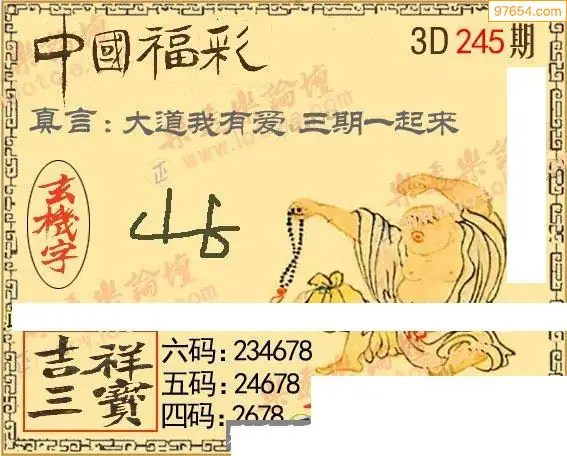 97654.com
中國福彩
3D 245期
真言：大道我有爱 三期一起来
玄機字
吉祥三寶
六码:234678
五码:24678
四码:2678